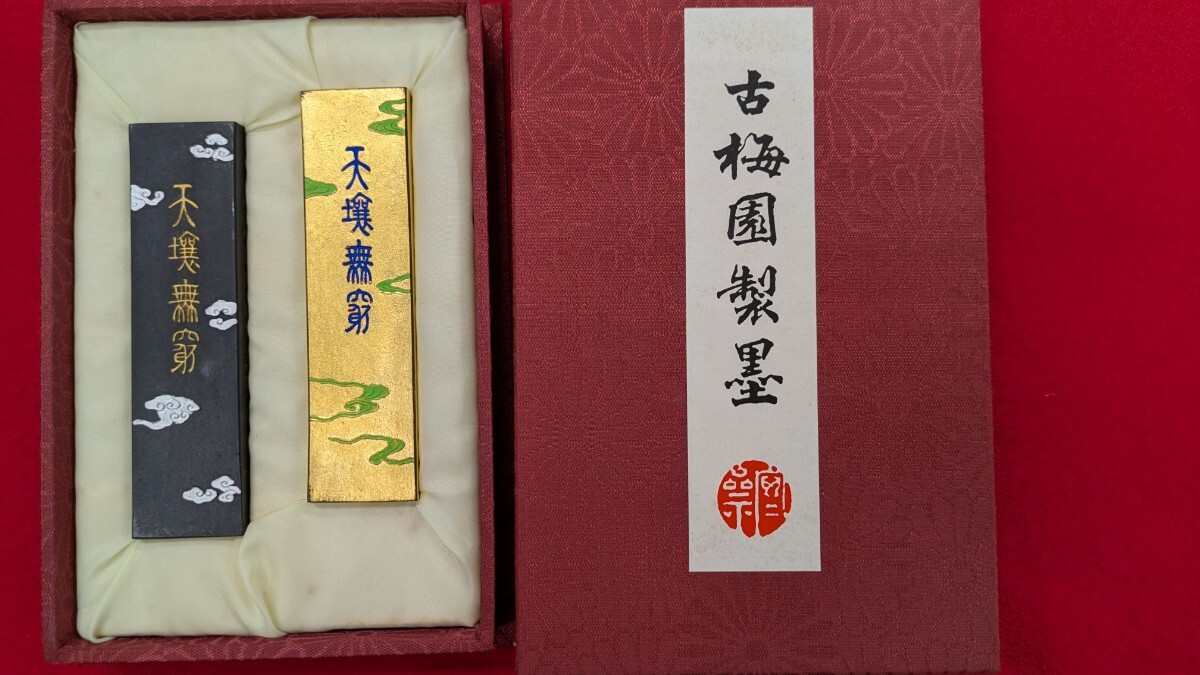 天壤無窮
天壤無窮
古梅園製墨